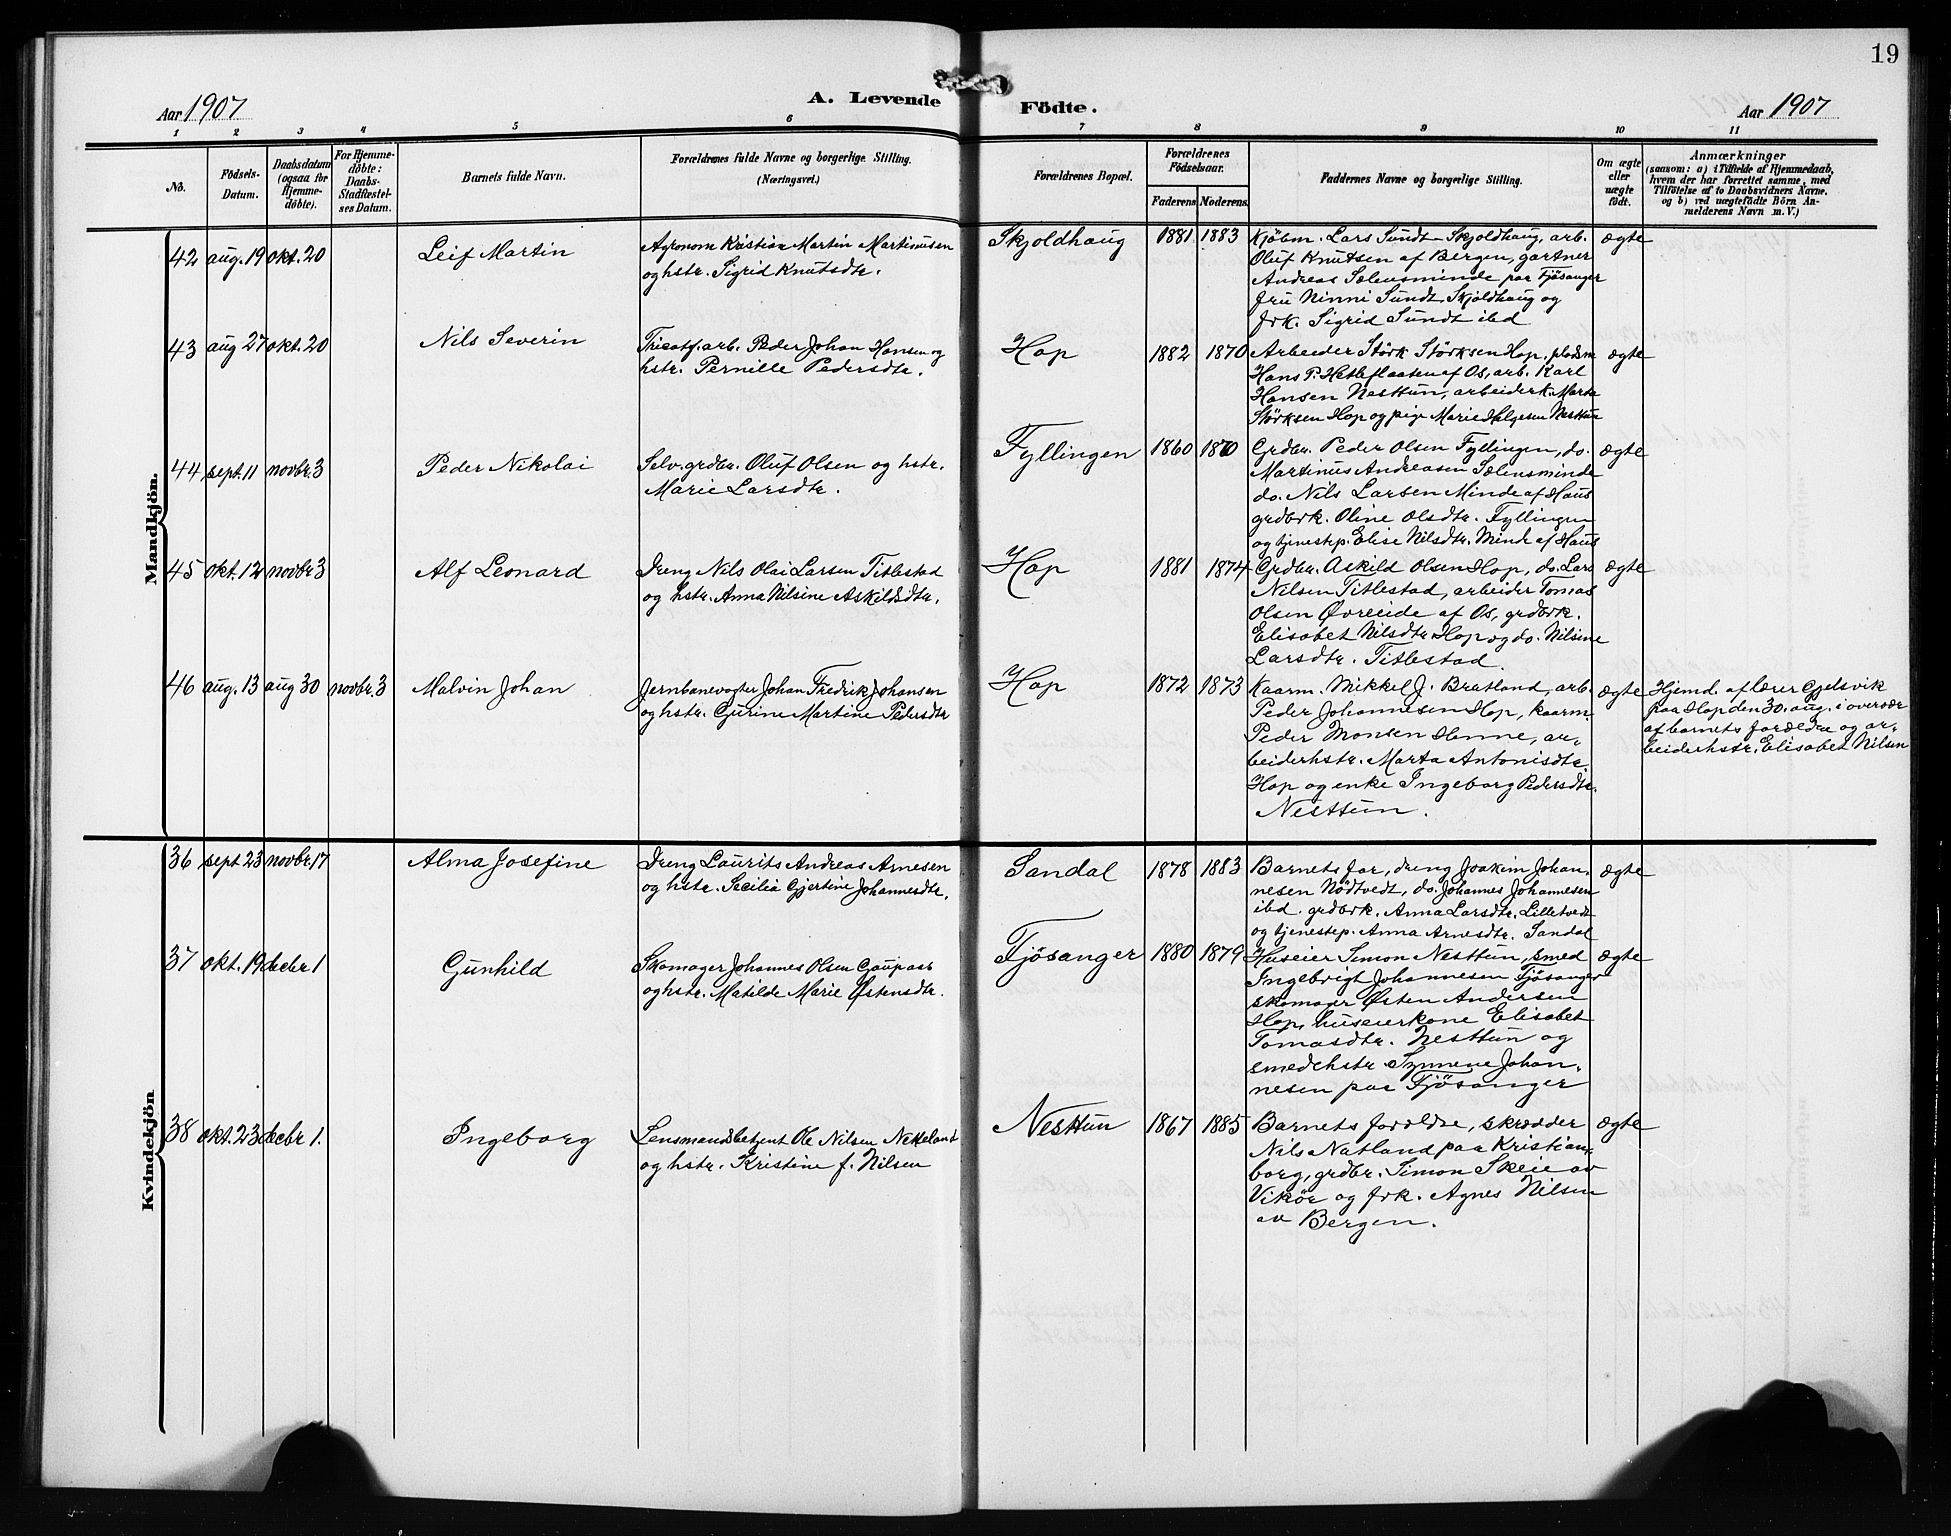 19
Aar 1907
A. Levende Födte.
Aar 1907
1 2 3 4 5 6 7 8 9 10 11
No.
Födsels-Datum.
Daabsdatum (ogsaa för Hjemme-döbte).
For Hjemme-döbte: Daabs-Stadfæstel-ses Datum.
Barnets fulde Navn.
Forældrenes fulde Navne og borgerlige Stilling. (Næringsvei.)
Forældrenes Bopæl.
Forældrenes Födselsaar.
Faderens. Moderens.
Faddernes Navne og borgerlige Stilling.
Om ægte eller uægte födt.
Anmærkninger
(saasom: a) i Tilfælde af Hjemmedaab,
hvem der har forrettet samme, med
Tilföielse af to Daabsvidners Navne.
og b) ved uægtefödte Börn An-
melderens Navn m.V.)
Mandkjön.
42 aug. 19 okt. 20 Leif Martin
Agronom Kristian Martin Martinusen
og hstr. Sigrid Knutsdtr.
Skjoldhaug 1881 1883
Kjøbm. Lars Sundt Skjoldhaug, arb.
Oluf Knutsen af Bergen, gartner
Andreas Sælensminde paa Fjösanger
fru Ninni Sundt Skjoldhaug og
frk. Sigrid Sundt ibd
ægte
43 aug 27 okt. 20 Nils Severin
Tricotf.arb. Peder Johan Hansen og
hstr. Pernille Pedersdtr.
Hop 1882 1870
Arbeider Störk Störksen Hop, pladsm
Hans P. Hetleflaaten af Os, arb. Karl
Hansen Nesttun, arbeiderk. Marta
Störksen Hop og pige Marie Helgesen Nesttun
ægte
44 sept. 11 novbr. 3 Peder Nikolai
Selv.grdbr. Oluf Olsen og hstr.
Marie Larsdtr.
Fyllingen 1860 1870
Grdbr. Peder Olsen Fyllingen, do.
Martinus Andreasen Sælensminde
do. Nils Larsen Minde af Haus
grdbrk. Oline Olsdtr. Fyllingen
og tjenestep. Elise Nilsdtr. Minde af Haus
ægte
45 okt. 12 novbr 3 Alf Leonard
Dreng Nils Olai Larsen Titlestad
og hstr. Anna Nilsine Askildsdtr.
Hop 1881 1874
Grdbr. Askild Olsen Hop, do. Lars
Nilsen Titlestad, arbeider Tomas
Olsen Øvreeide af Os, grdbrk.
Elisabet Nilsdtr Hop og do. Nilsine
Larsdtr. Titlestad.
ægte
46 aug. 13 aug 30 novbr. 3 Malvin Johan
Jernbanevogter Johan Fredrik Johansen
og hstr. Gurine Martine Pedersdtr
Hop 1872 1873
Kaarm. Mikkel J. Bratland, arb.
Peder Johannesen Hop, kaarm.
Peder Monsen Henne, ar-
beiderhstr. Marta Antonisdtr.
Hop og enke Ingeborg Pedersdtr.
Nesttun.
ægte
Hjemd. af lærer Gjelsvik
paa Hop den 30. aug. i overvær
af barnets forældre og ar-
beiderhstr. Elisabet Nilsen
Kvindekjön
36 sept 23 novbr. 17 Alma Josefine
Dreng Laurits Andreas Arnesen
og hstr. Secilia Gjertine Johannesdtr.
Sandal 1878 1883
Barnets far, dreng Joakim Johan-
nesen Nödtvedt, do. Johannes Johannesen
ibd. grdbrk. Anna Larsdtr. Lilletvedt
og tjenestep. Anna Arnesdtr. Sandal
ægte
37 okt. 19 decbr 1 Gunhild
Skomager Johannes Olsen Gaupaas
og hstr. Matilde Marie Østensdtr.
Fjösanger 1880 1879
Huseier Simon Nesttun, smed
Ingebrigt Johannesen Fjösanger
skomager Østen Andersen
Hop, huseierkone Elisabet
Tomasdtr. Nesttun og
smedehstr Synneve Johan-
nesen paa Fjösanger
ægte
38 okt. 23 decbr 1. Ingeborg
Lensmandsbetjent Ole Nilsen Netteland
og hstr. Kristine f. Nilsen
Nesttun 1867 1885
Barnets forældre, skrædder
Nils Natland paa Kristian-
borg, grdbr. Simon Skeie av
Vikör og frk. Agnes Nilsen
av Bergen.
ægte